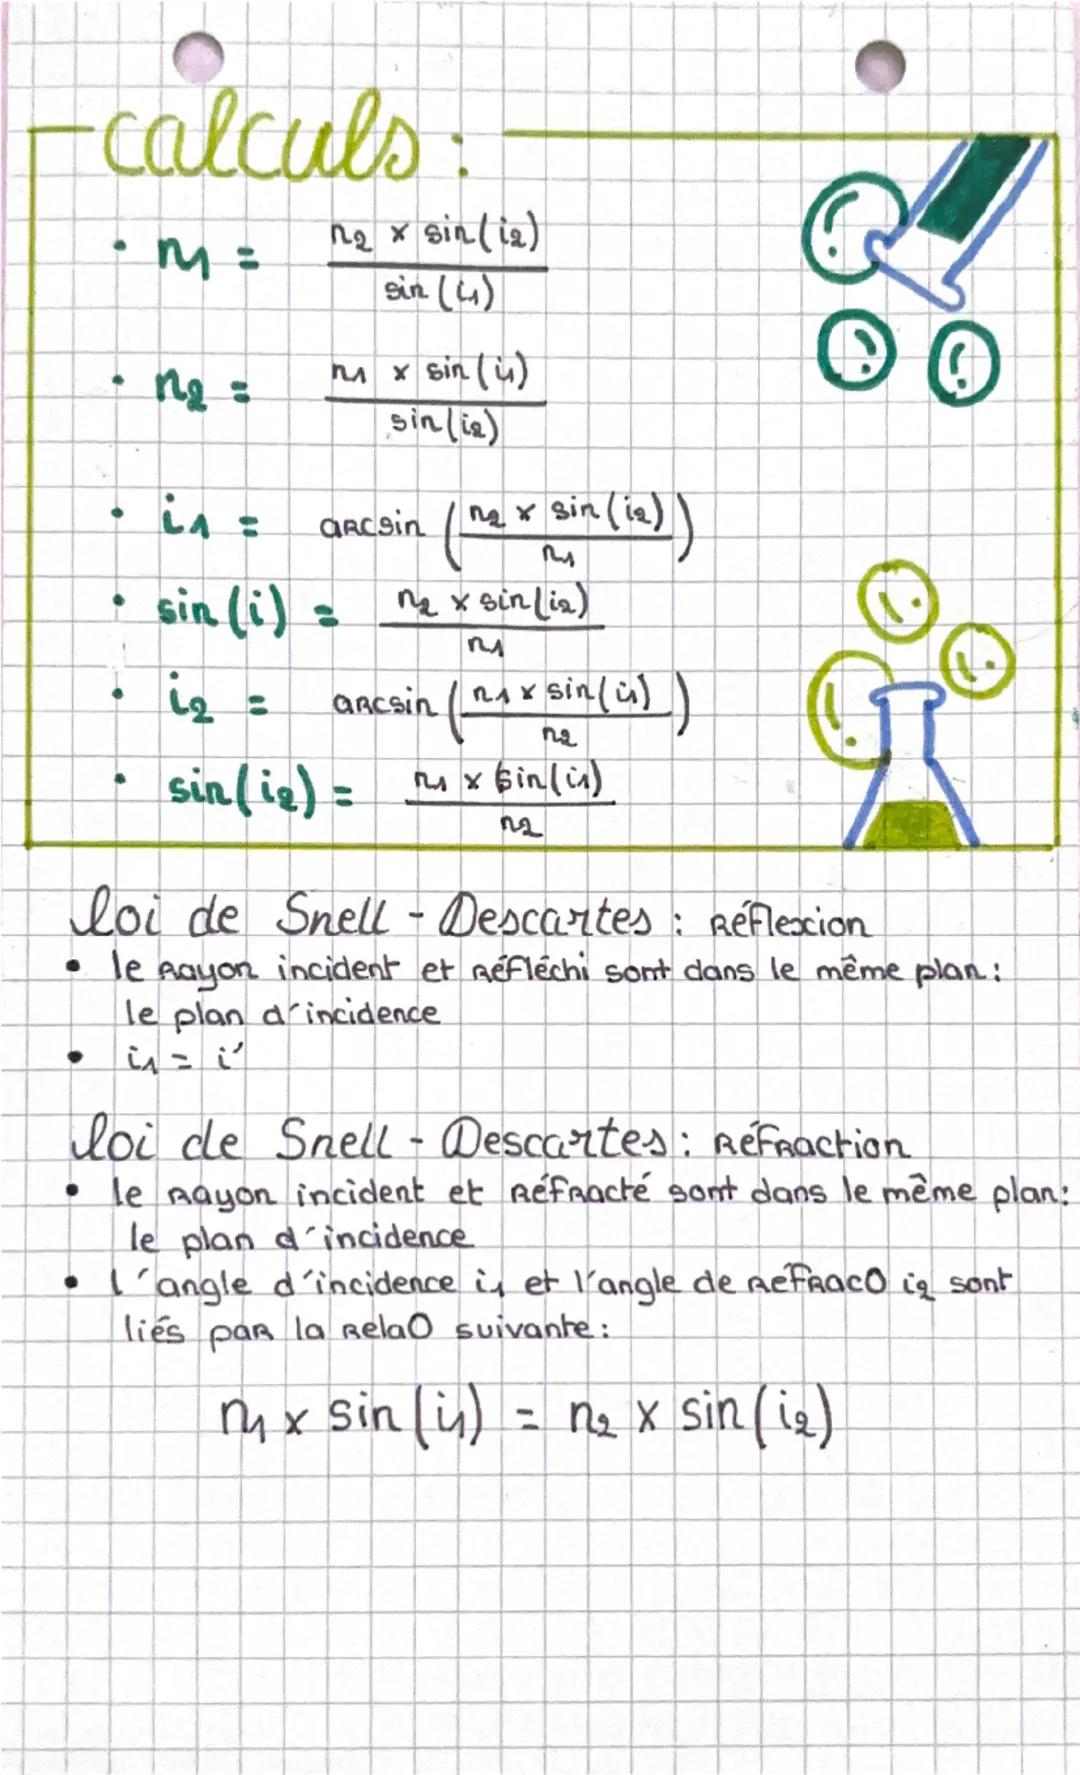 calculs :
• n1 = n2 x sin(i2) / sin(i1)
• n2 = n1 x sin(i1) / sin(i2)
• i1 = arcsin (n2 x sin(i2) / n1)
• sin(i) = n2 x sin(i2) / n1
• i2 = arcsin (n1 x sin(i1) / n2)
• sin(i2) = n1 x sin(i1) / n2
loi de Snell - Descartes : Réflexion
• le rayon incident et réfléchi sont dans le même plan :
le plan d'incidence
• i1 = i'
loi de Snell - Descartes : Réfraction
• le rayon incident et réfracté sont dans le même plan :
le plan d'incidence
• l'angle d'incidence i1 et l'angle de refracO i2 sont
liés par la relaO suivante :
n1 x sin(i1) = n2 x sin(i2)